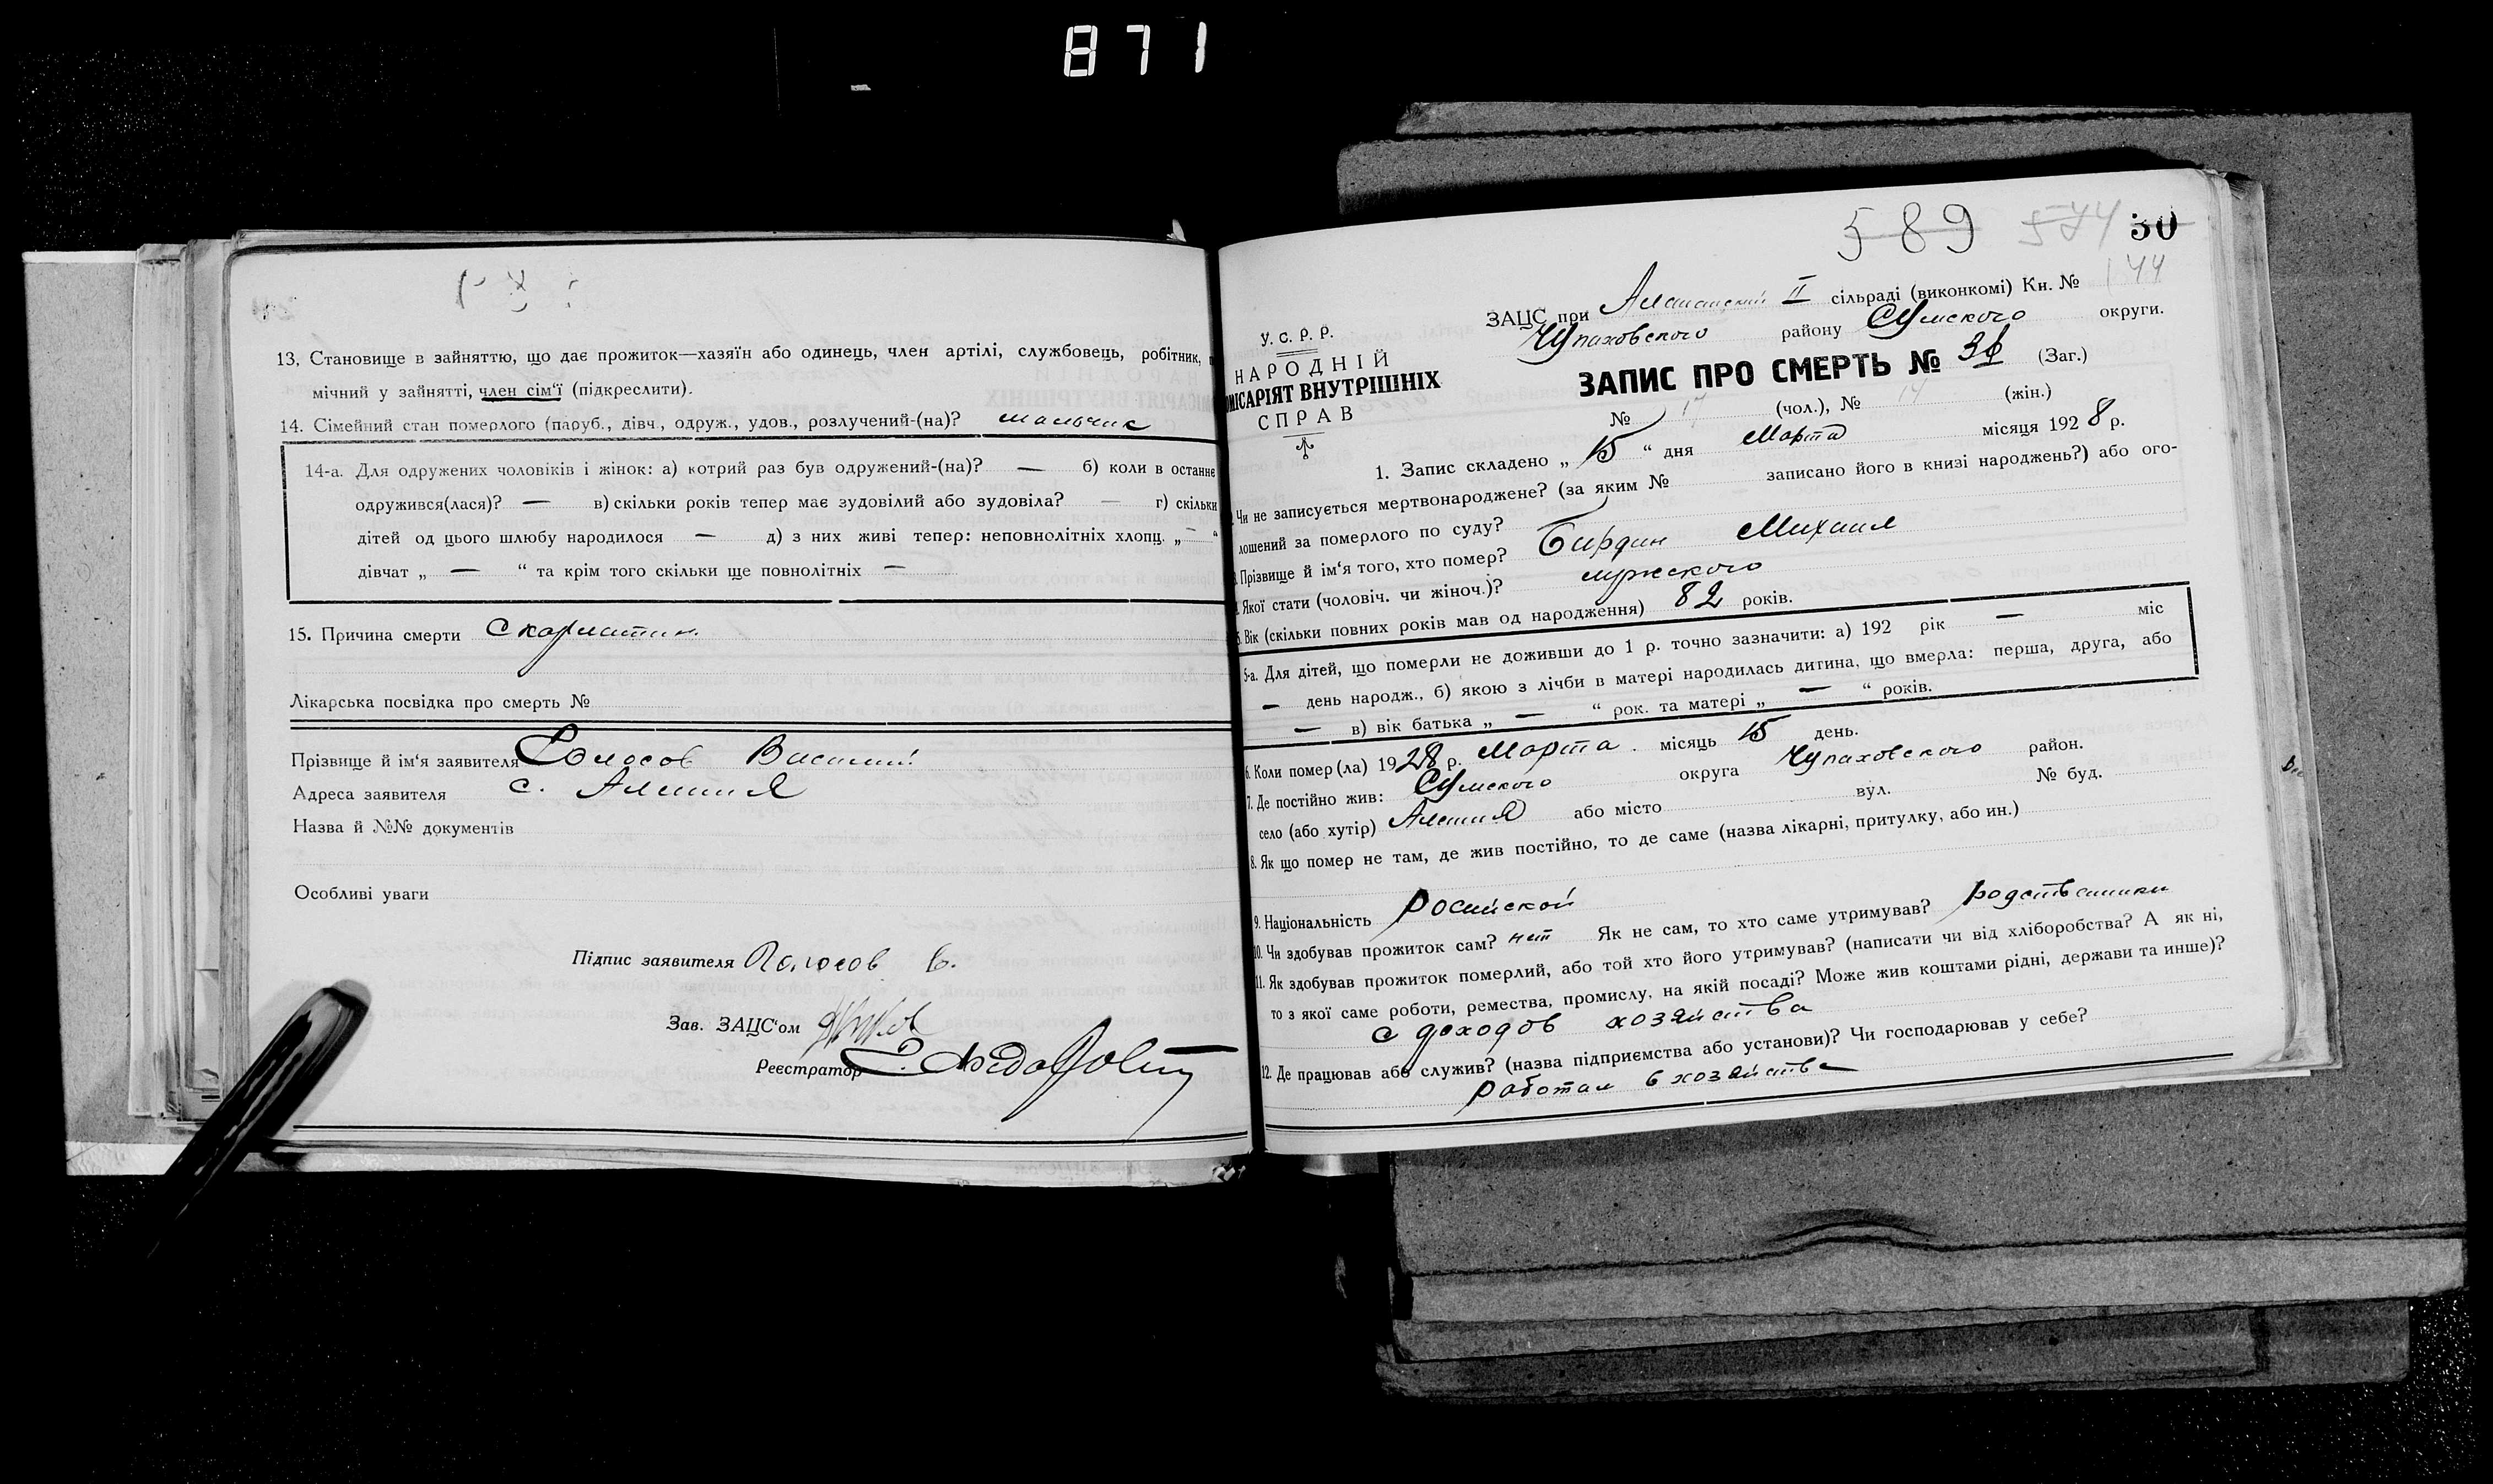 871
13. Становище в зайняттю, що дає прожиток—хазяїн або одинець, член артілі, службовець, робітник,
мічний у зайнятті, член сім'ї (підкреслити).
14. Сімейний стан померлого (паруб., дівч., одруж., удов., розлучений-(на)? мальчик
14-а. Для одружених чоловіків і жінок: а) котрий раз був одружений-(на)? — б) коли в останнє
одружився(лася)? — в) скільки років тепер має зудовілий або зудовіла? — г) скільки
дітей од цього шлюбу народилося — д) з них живі тепер: неповнолітніх хлопц. „ — “
дівчат „ — “ та крім того скільки ще повнолітніх —
15. Причина смерти Скарлатин.
Лікарська посвідка про смерть №
Прізвище й ім'я заявителя Колосов Василий
Адреса заявителя с. Алешня
Назва й №№ документів
Особливі уваги
Підпис заявителя В.
Зав. ЗАЦС'ом
Реєстратор
589 574 30
144
У. С. Р. Р.
НАРОДНІЙ
КОМІСАРІЯТ ВНУТРІШНІХ
СПРАВ
ЗАЦС при Алешанский II сільраді (виконкомі) Кн. №
Чупаховского району Сумского округи.
ЗАПИС ПРО СМЕРТЬ № (Заг.)
№ 17 (чол.), № 14 (жін.)
1. Запис складено „ 15 “ дня Марта місяця 1928 р.
Чи не записується мертвонароджене? (за яким № записано його в книзі народжень?) або ого-
лошений за померлого по суду?
3. Прізвище й ім'я того, хто помер? Бирдин Михаил
4. Якої стати (чоловіч. чи жіноч.)? мужского
5. Вік (скільки повних років мав од народження) 82 років.
5-а. Для дітей, що померли не доживши до 1 р. точно зазначити: а) 192 рік — міс
— день народж., б) якою з лічби в матері народилась дитина, що вмерла: перша, друга, або
— в) вік батька „ — “ рок. та матері „ — “ років.
6. Коли помер (ла) 1928 р. Марта . місяць 15 день.
7. Де постійно жив: Сумского округа Чупаховского район.
село (або хутір) Алешня або місто вул. № буд.
8. Як що помер не там, де жив постійно, то де саме (назва лікарні, притулку, або ин.)
9. Національність Росийской
10. Чи здобував прожиток сам? нет Як не сам, то хто саме утримував? родственники
11. Як здобував прожиток померлий, або той хто його утримував? (написати чи від хліборобства? А як ні,
то з якої саме роботи, ремества, промислу, на якій посаді? Може жив коштами рідні, держави та инше)?
с доходов хозяйства
12. Де працював або служив? (назва підприємства або установи)? Чи господарював у себе?
работал в хозяйстве